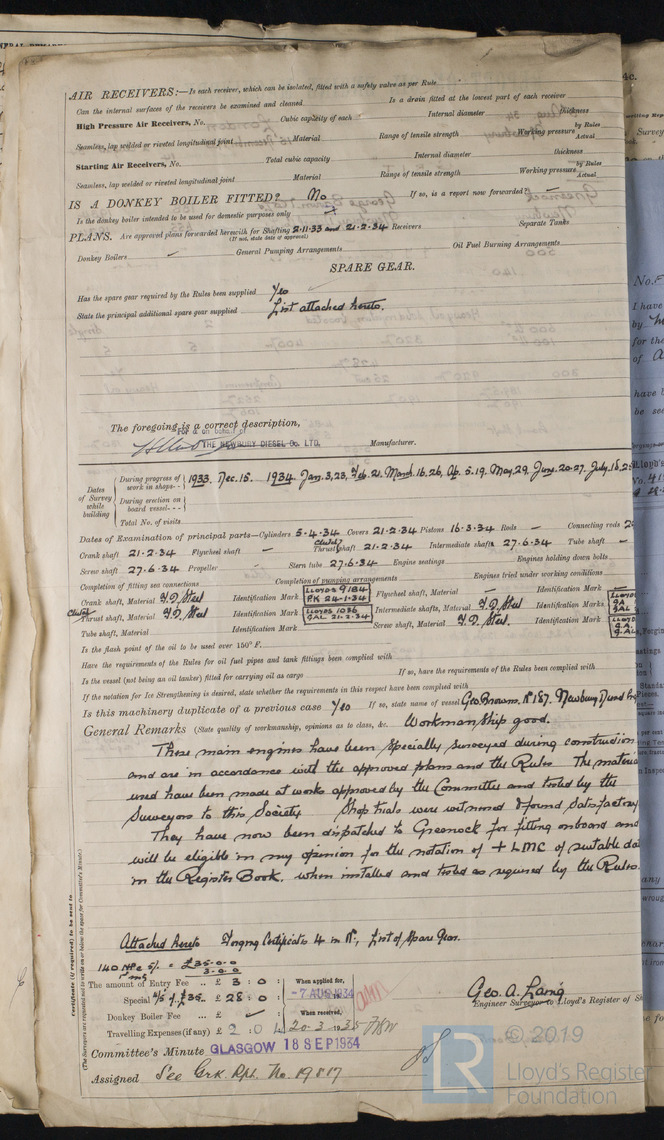 AIR RECEIVERS:—Is each receiver, which can be isolated, fitted with a safety valve as per Rule
Can the internal surfaces of the receivers be examined and cleaned Is a drain fitted at the lowest part of each receiver
High Pressure Air Receivers, No. Cubic capacity of each Internal diameter thickness
Seamless, lap welded or riveted longitudinal joint Material Range of tensile strength Working pressure by Rules Actual
Starting Air Receivers, No. Total cubic capacity Internal diameter thickness
Seamless, lap welded or riveted longitudinal joint Material Range of tensile strength Working pressure by Rules Actual
IS A DONKEY BOILER FITTED? No If so, is a report now forwarded? —
Is the donkey boiler intended to be used for domestic purposes only
PLANS. Are approved plans forwarded herewith for Shafting 2-11-33 and 21-2-34 Receivers Separate Tanks
(If not, state date of approval)
Donkey Boilers General Pumping Arrangements Oil Fuel Burning Arrangements
SPARE GEAR.
Has the spare gear required by the Rules been supplied Yes
State the principal additional spare gear supplied List attached hereto.
The foregoing is a correct description,
For & on behalf of
THE NEWBURY DIESEL Co. LTD. Manufacturer.
Dates of Survey while building
During progress of work in shops - - 1933 Dec. 15. 1934 Jan. 3, 23, Feb. 21. March 16. 26, Ap. 5. 19. May 29, June 20. 27. July 18.
During erection on board vessel - - -
Total No. of visits
Dates of Examination of principal parts—Cylinders 5-4-34 Covers 21-2-34 Pistons 16-3-34 Rods — Connecting rods
Crank shaft 21-2-34 Flywheel shaft — Clutch Thrust shaft 21-2-34 Intermediate shafts 27-6-34 Tube shaft —
Screw shaft 27-6-34 Propeller Stern tube 27-6-34 Engine seatings Engines holding down bolts
Completion of fitting sea connections Completion of pumping arrangements Engines tried under working conditions
Crank shaft, Material I.D. Steel Identification Mark LLOYDS 9184 PK 24-1-34 Flywheel shaft, Material — Identification Mark —
Clutch Thrust shaft, Material I.D. Steel Identification Mark LLOYDS 1036 GAL 21-2-34 Intermediate shafts, Material I.D. Steel Identification Marks LLOYDS GA GAL
Tube shaft, Material Identification Mark Screw shaft, Material I.D. Steel. Identification Mark LLOYDS G.A. G.AL
Is the flash point of the oil to be used over 150° F.
Have the requirements of the Rules for oil fuel pipes and tank fittings been complied with
Is the vessel (not being an oil tanker) fitted for carrying oil as cargo If so, have the requirements of the Rules been complied with
If the notation for Ice Strengthening is desired, state whether the requirements in this respect have been complied with
Is this machinery duplicate of a previous case Yes If so, state name of vessel Geo Browns. No 187. Newbury Diesel
General Remarks (State quality of workmanship, opinions as to class, &c. Workmanship good.
These main engines have been specially surveyed during construction
and are in accordance with the approved plans and the Rules The material
used have been made at works approved by the Committee and tested by the
Surveyors to this Society Shop trials were witnessed & found satisfactory
They have now been dispatched to Greenock for fitting onboard and
will be eligible in my opinion for the notation of + LMC of suitable da
in the Register Book, when installed and tested as required by the Rules.
Attached hereto Forging Certificates 4 in No, List of Spare Gear.
£35-0-0
3-0-0
The amount of Entry Fee .. £ 3 : 0 : When applied for,
Special 4/5 of £35. £ 28 : 0 : -7 AUG 1934
Donkey Boiler Fee .. £ When received,
Travelling Expenses (if any) £ 2 : 0 : 20-3-1935
Geo. A. Laing
Engineer Surveyor to Lloyd's Register of Sh
Committee's Minute GLASGOW 18 SEP 1934
Assigned See Grk. Rpt. No. 19817
Certificate (if required) to be sent to
(The Surveyors are requested not to write on or below the space for Committee's Minute.)
LR © 2019
Lloyd's Register
Foundation